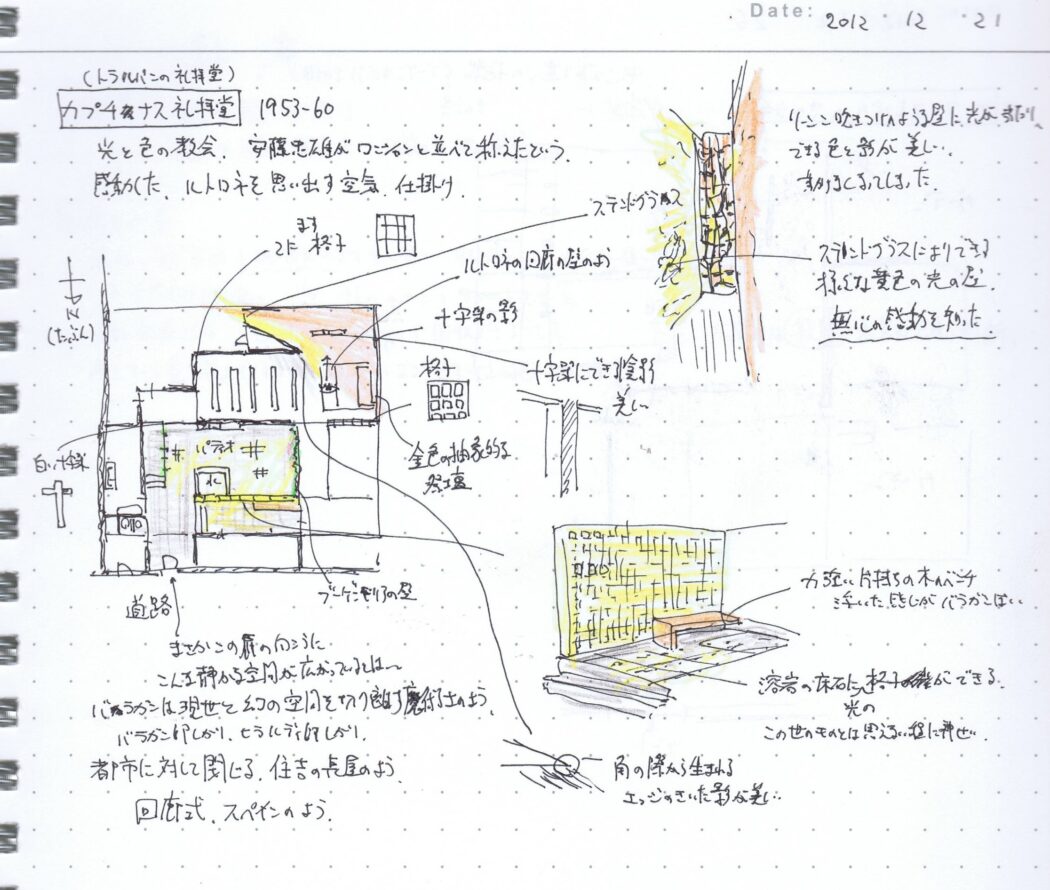 Date: 2012 · 12 · 21
(トラルパンの礼拝堂)
カプチナス礼拝堂 1953-60
光と色の教会. 安藤忠雄がロンシャンと並べて称えたという.
感動した. ル・トロネを思い出す空気. 仕掛け.
リシン吹きつけのような壁に光があたり,
できる色と影が美しい.
ステンドグラスによりできる
様々な黄色の光の壁.
無心の感動を知った.
ステンドグラス
ます
2F 格子
ル・トロネの回廊の壁のよう
十字架の影
N
(たぶん)
格子
十字架にできる陰影
美しい
金色の抽象的な
祭壇
白い十字架
パティオ
水
ブーゲンビリアの壁
道路
まさかこの扉の向こうに
こんな静かな空間が広がっているとは〜
バラガンは現世と幻の空間を切り離す魔術士のよう.
バラガン邸しかり、ヒラルディ邸しかり.
都市に対して閉じる. 住吉の長屋のよう.
回廊式. スペインのよう.
力強い片持ちの木のベンチ
浮いた感じがバラガンぽい
溶岩の床石に格子の 光の 影ができる.
この世のものとは思えない程に神せい.
角の際から生まれる
エッジのきいた影が美しい.